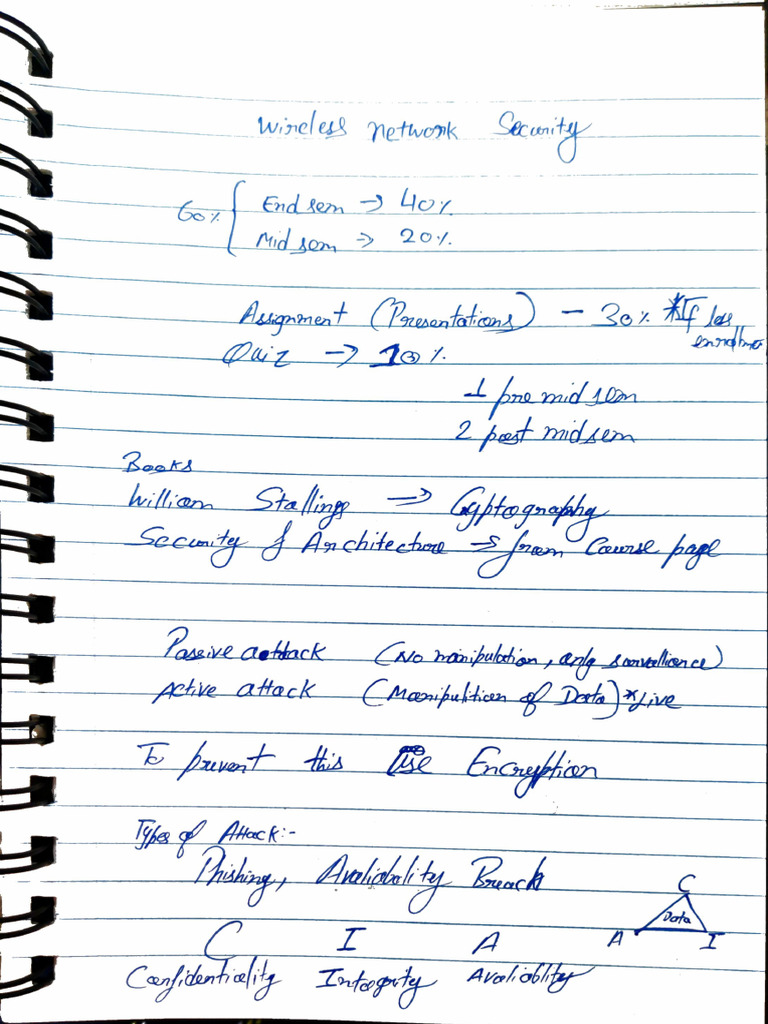 Wireless Network Security
60% { End sem → 40%
Mid sem → 20%
Assignment (Presentations) — 30% *If less enrollmen
Quiz → 10%
1 pre mid sem
2 post midsem
Books
William Stallings → Cryptography
Security & Architecture → from Course page
Passive attack (No manipulation, only survellience)
Active attack (Manipulition of Data) *Live
To prevent this Use Encryption
Types of Attack:-
Phishing, Avaliability Breach
C I A
Confidentiality Intergrity Avaliablity
C
Data
A I